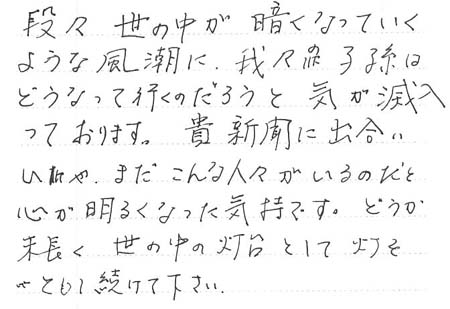 段々 世の中が 暗くなっていく
ような風潮に、我々 子孫は
どうなって行くのだろうと 気が滅入
っております。 貴新聞に出合い
まだ こんな人々がいるのだと
心が明るくなった気持です。どうか
末長く 世の中の灯台として 灯を
ともし続けて下さい。